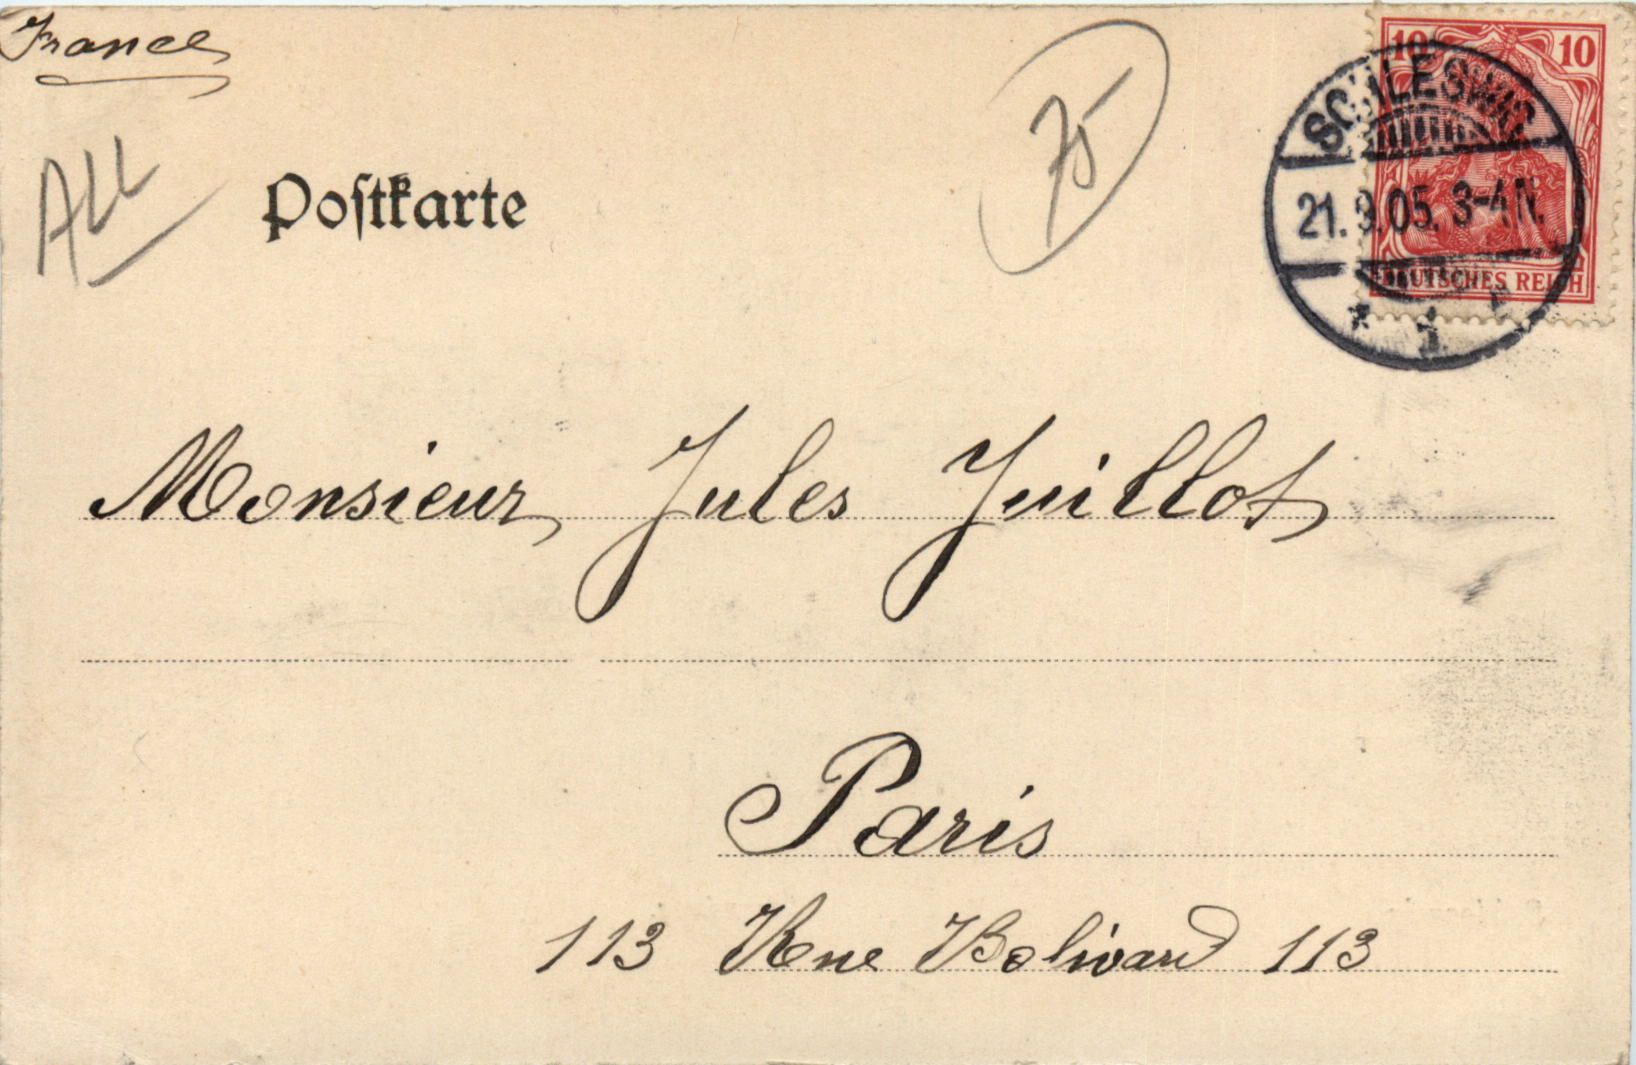 France
ALL
75
10 10
SCHLESWIG
21.9.05. 3-4 N.
DEUTSCHES REICH
* 1. *
Postkarte
Monsieur Jules Juillot
Paris
113 Rue Bolivard 113